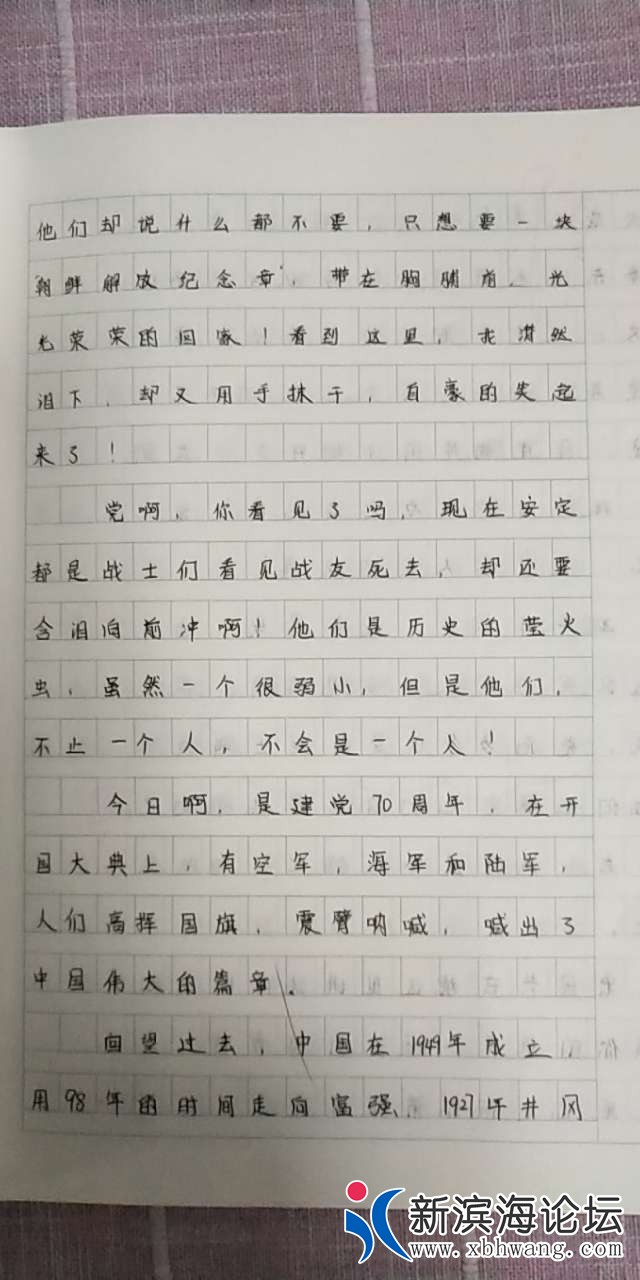 他们却说什么都不要，只想要一块
朝鲜解放纪念章，带在胸脯前，光
光荣荣的回家！看到这里，我潸然
泪下，却又用手抹干，自豪的笑起
来了！
党啊，你看见了吗，现在安定
都是战士们看见战友死去，却还要
含泪向前冲啊！他们是历史的萤火
虫，虽然一个很弱小，但是他们，
不止一个人，不会是一个人！
今日啊，是建党70周年，在开
国大典上，有空军，海军和陆军，
人们高挥国旗，震臂呐喊，喊出了
中国伟大的篇章、
回望过去，中国在1949年成立，
用98年的时间走向富强，1927年井冈
新滨海论坛
www.xbhwang.com